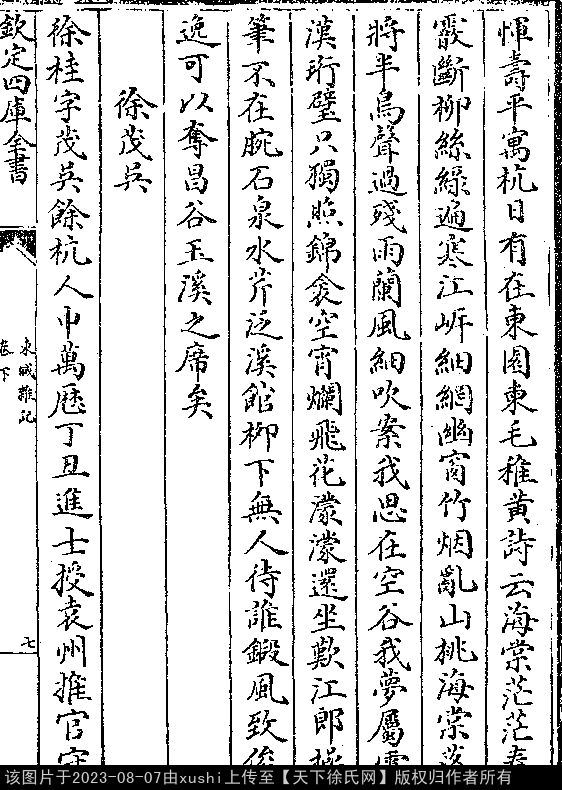 惲壽平寓杭日有在東園柬毛稚黃詩云海棠茫茫春
霰斷柳絲綠遍寒江岸細網幽窗竹烟亂山桃海棠落
將半鳥聲過殘雨蘭風細吹案我思在空谷我夢屬雲
漢珩璧只獨照錦衾空宵爛飛花濛濛還坐歎江郎
筆不在腕石泉水芹泛溪館柳下無人待誰鍛風致俊
逸可以奪昌谷玉溪之席矣
徐茂吳
徐桂字茂吳餘杭人中萬厯丁丑進士授袁州推官
欽定四庫全書
東城雜記
卷下
七
该图片于2023-08-07由xushi上传至【天下徐氏网】版权归作者所有